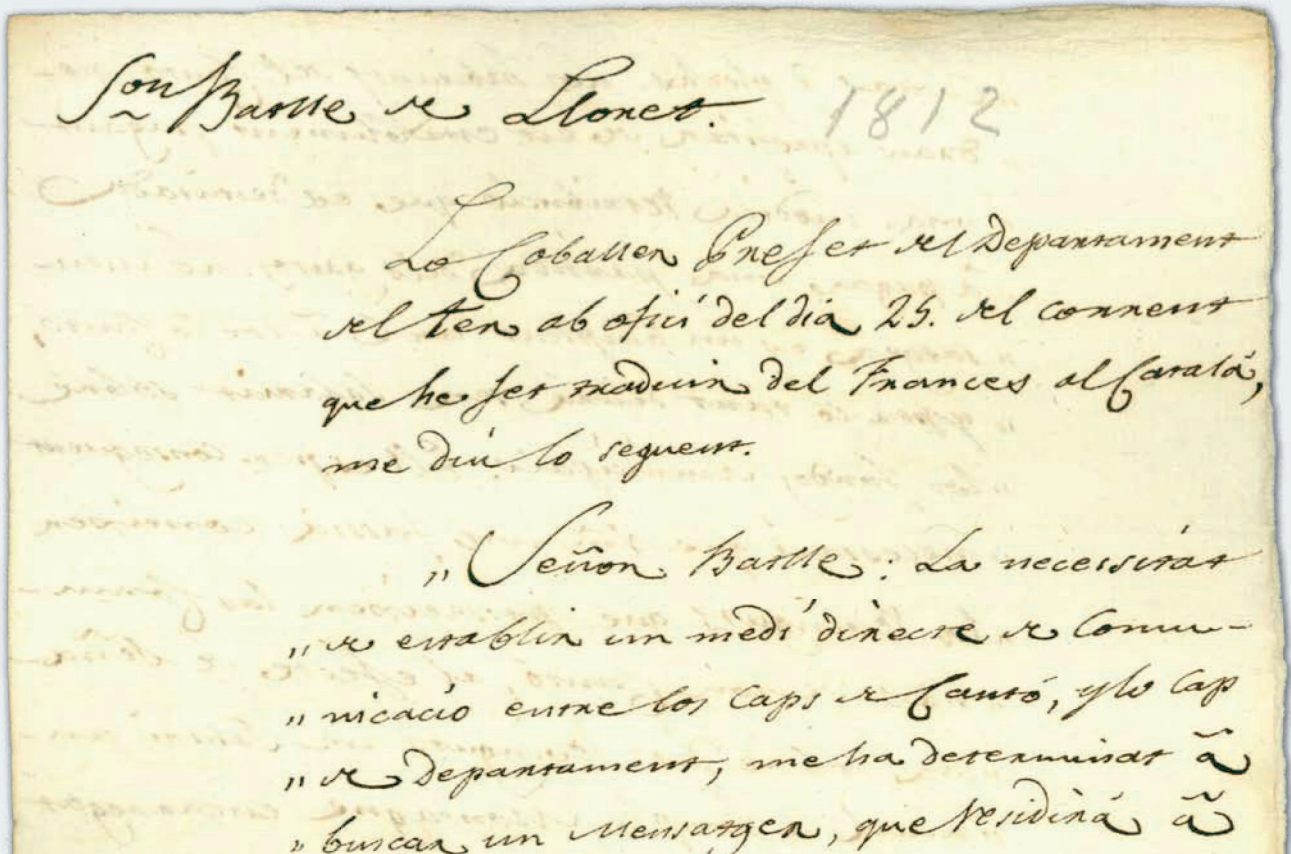 Sor Batlle de Lloret. 1812
Lo Caballer Prefet del Departament
del Ter ab ofici del dia 25. del corrent
que he fet traduir del Frances al Catalá,
me diu lo seguent.
„ Señor Batlle: La necessitat
„ de establir un medi directe de Comu-
„ nicació entre los Caps de Cantó, y lo Cap
„ de Departament, me ha determinat â
„ buscar un Mensatger, que residirá â